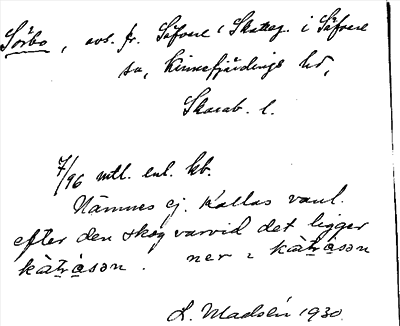 Sörbo, avs. fr. Säfvare (Skattag. i Säfvare
sn, Kinnefjärdings hd,
Skarab. l.
7/96 mtl. enl. kb.
Nämnes ej. Kallas vanl.
efter den skog varvid det ligger
kàtṛásən. ner i kàtṛásən
L. Madsén 1930.